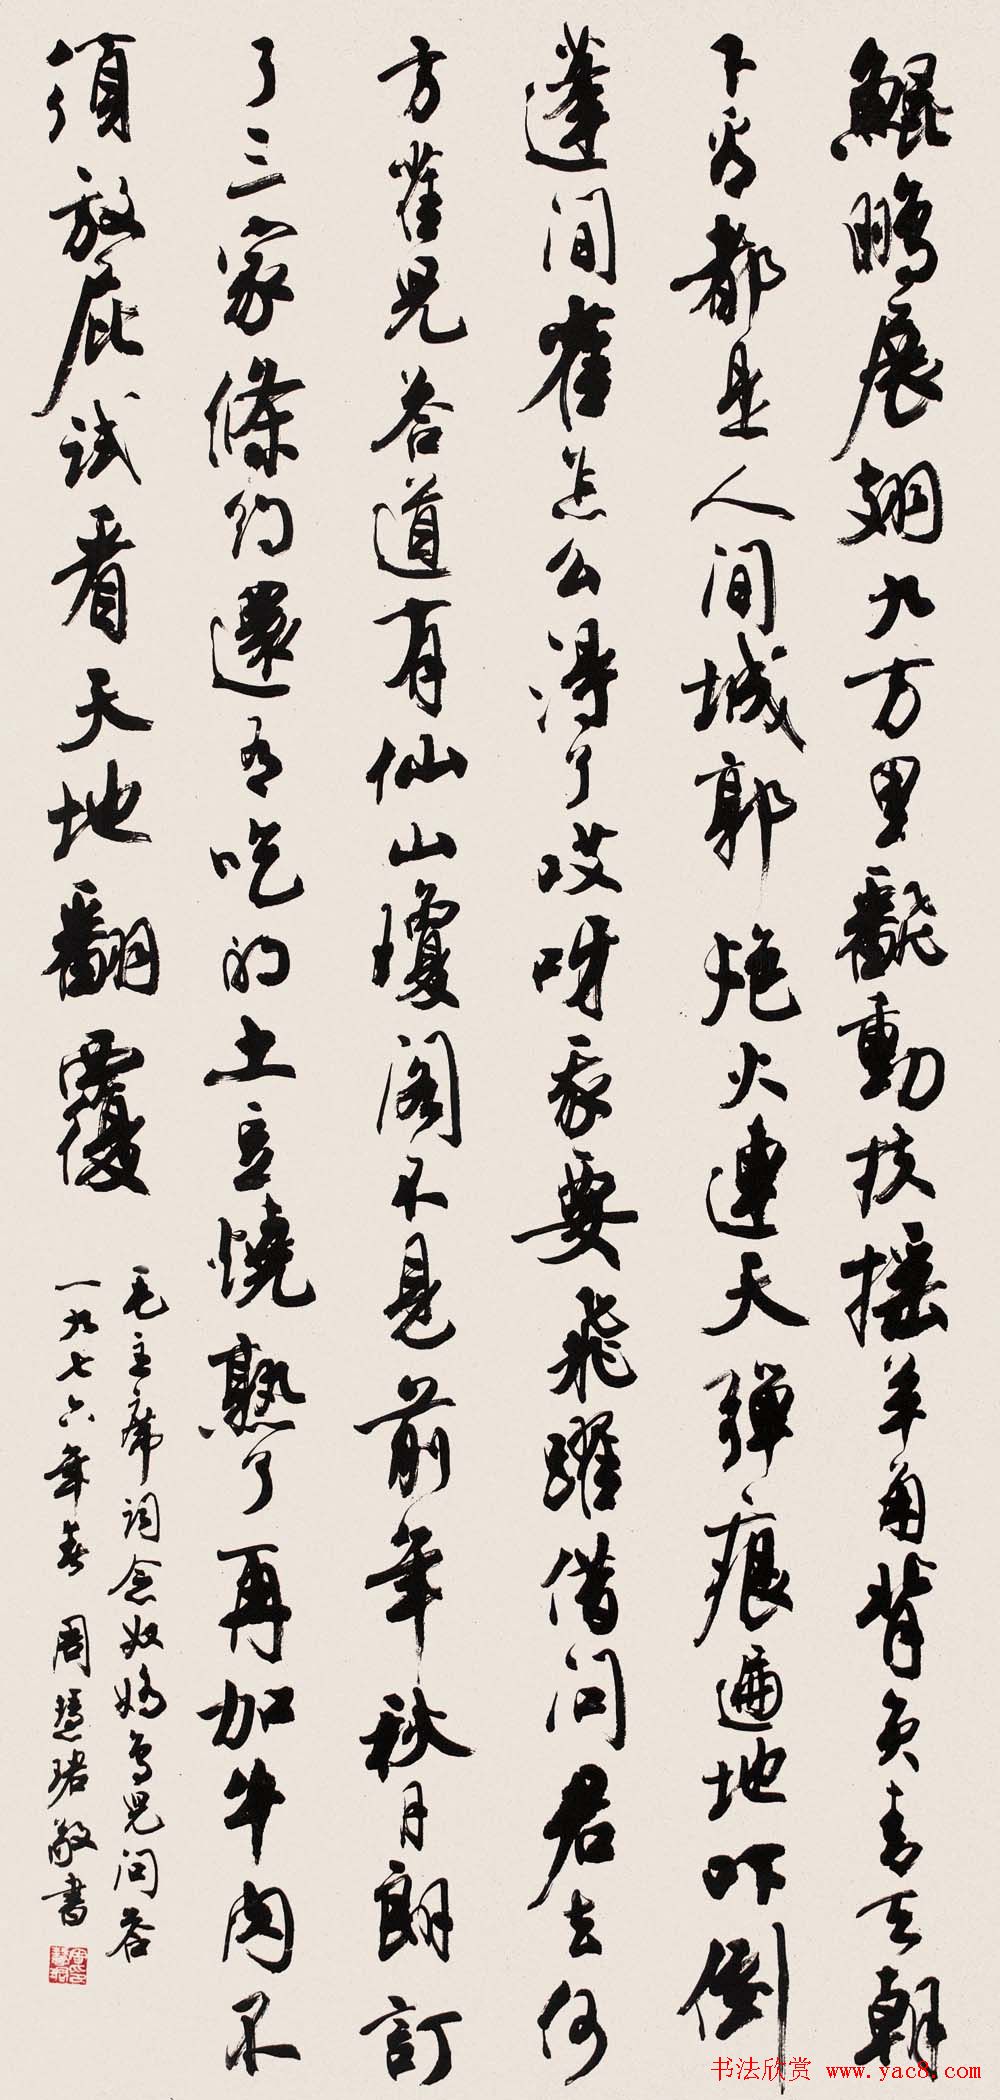 鯤鵬展翅九万里飜動扶摇羊角背負青天朝
下看都是人间城郭炮火連天彈痕遍地吓倒
蓬间雀怎么得了哎呀我要飛躍借问君去何
方雀児答道有仙山瓊阁不見前年秋月朗訂
了三家條约還有吃的土豆燒熟了再加牛肉不
須放屁試看天地翻覆
毛主席词念奴嬌鳥児问答
一九七六年春 周慧珺敬書
书法欣赏 www.yac8.com